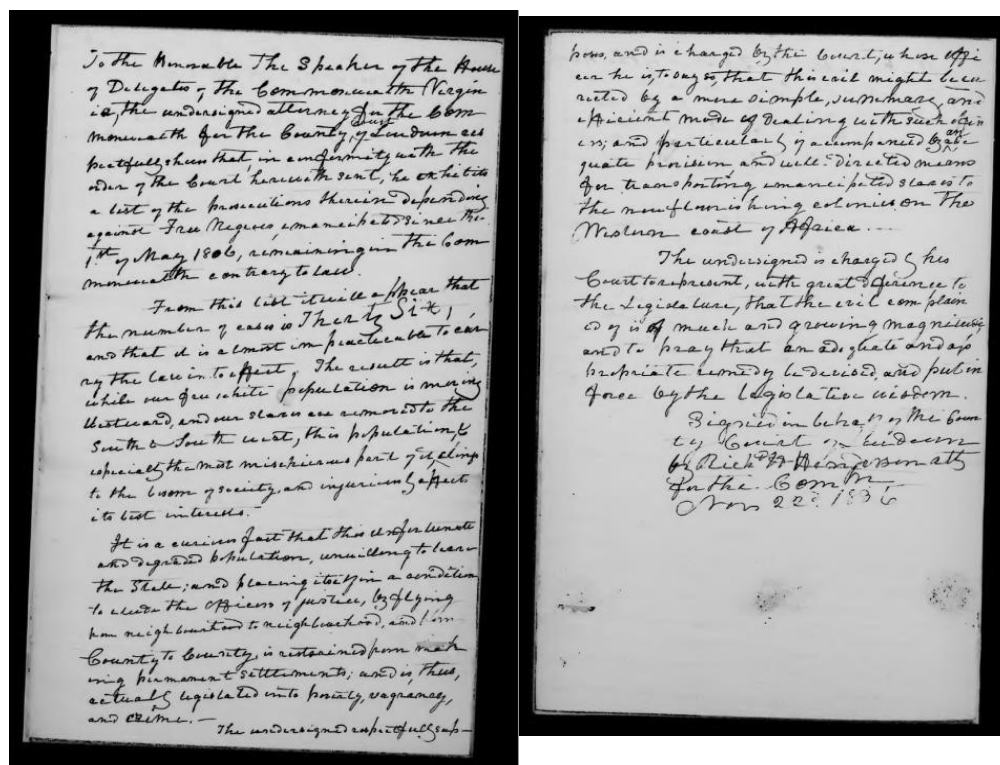 To the Honorable The Speaker of the House
of Delegates of the Commonwealth Virgin
ia, the undersigned attorney for the Com
monwealth for the County Court of Loudoun res
pectfully shews that, in conformity with the
order of the Court herewith sent, he exhibits
a list of the prosecutions therein depending
against Free Negroes, emancipated since the
1st of May 1806, remaining in the Com
monwealth contrary to law.
From this list it will appear that
the number of cases is Thirty Six,
and that it is almost impracticable to car
ry the law into effect. The result is that,
while our free white population is moving
Westward, and our slaves are removed to the
South & South west, this population, &
especially the most mischievous part of it, clings
to the bosom of society, and injuriously affects
its best interests.-
It is a curious fact that this unfortunate
and degraded population, unwilling to leave
the State; and placing itself in a condition
to elude the officers of justice, by flying
from neighbourhood to neighbourhood, and from
County to County, is restrained from mak
ing permanent settlements; and is, thus,
actually legislated into poverty, vagrancy,
and crime.-
The undersigned respectfully sup-
poses, and is charged by the Court, whose offi
cer he is, to say so, that this evil might be cor
rected by a more simple, summary, and
efficient mode of dealing with such
and particularly if accompanied by an ade
quate provision and well-directed means
for transporting emancipated slaves to
the now flourishing colonies on the
Western coast of Africa.--
The undersigned is charged by his
Court to represent, with great deference to
the Legislature, that the evil complain
ed of is of much and growing magnitude,
and to pray that an adequate and ap
propriate remedy be devised, and put in
force by the legislative wisdom.
Signed in behalf of the Coun
ty Court of Loudoun
by Richd H Henderson atty
for the Comth
Nov 22d. 1836